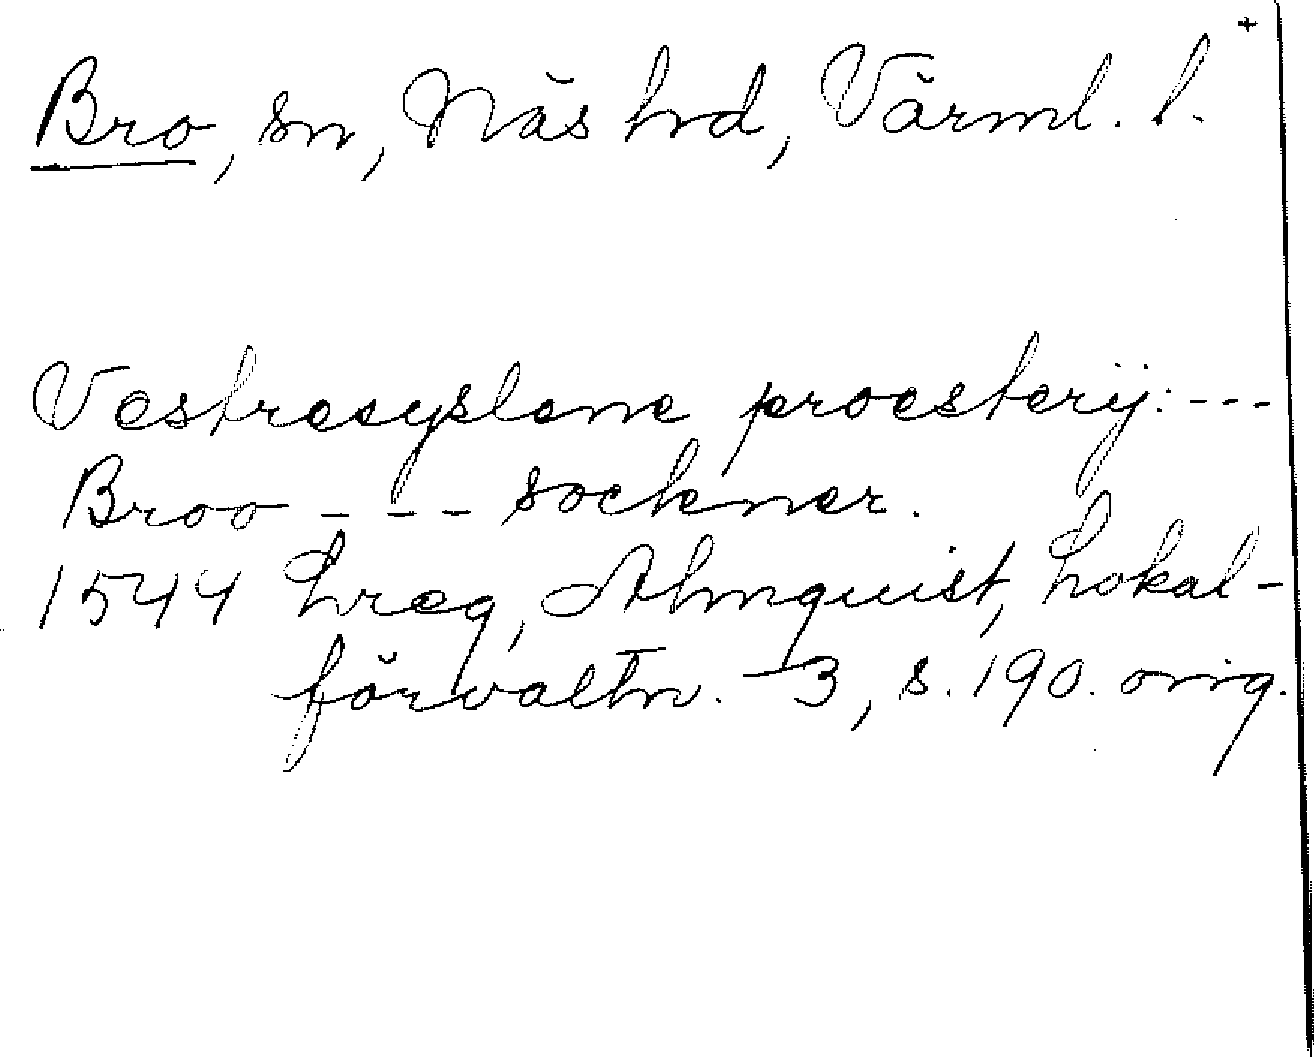 +
Bro, sn, Näs hd, Värml. l.
Vestresyslene proesterij: ---
Broo --- sockner.
1544 Lreg, Almquist, Lokal-
förvaltn. 3, s. 190. orig.